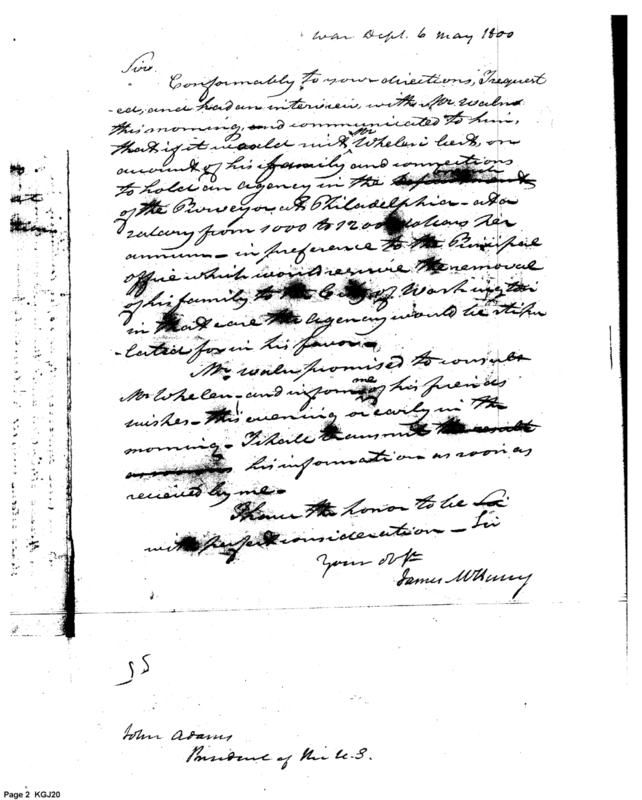 War Dept. 6 May 1800
Sir.
Conformably to your directions, I request
-ed, and had an interview, with Mr Waln
this morning, and communicated to him,
that if it would suit Mr Whelen best, on
account of his family and connections
to hold an agency in the
of the Purveyor at Philadelphia - at a
salary from 1000 to 1200 dollars per
annum - in preference to the Principal
office which would require the removal
of his family to the City of Washington
in that case the agency would be stipu
-lated for in his favor -
Mr Waln promised to consult
Mr Whelen - and inform me of his friends
wishes - this evening or early in the
morning - I shall transmit the result
as soon as his information as soon as
received by me -
I have the honor to be Sir
with perfect consideration - Sir
Your obt
James McHenry
John Adams
President of the U.S.
Page 2 KGJ20